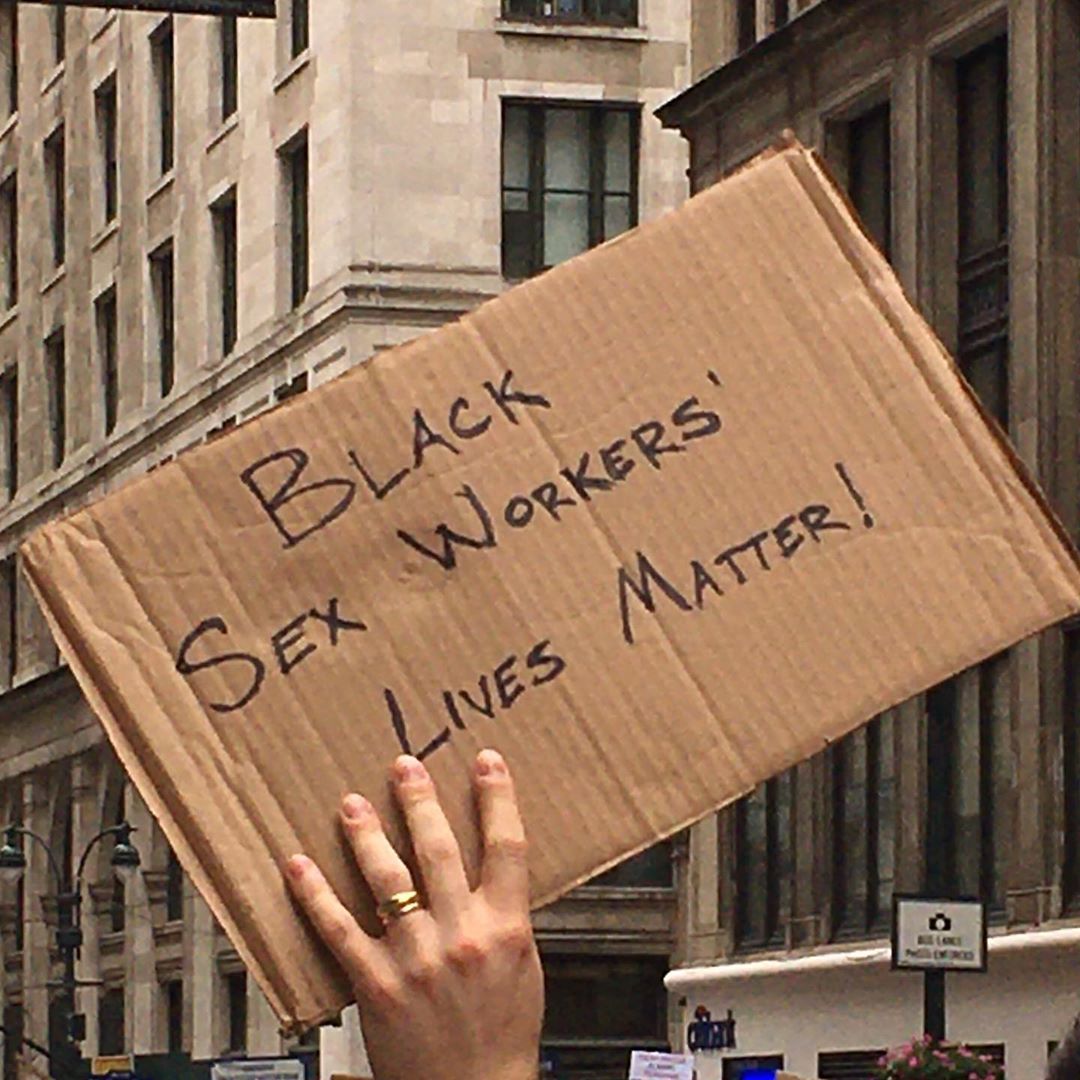 BLACK
SEX WORKERS'
LIVES MATTER!
BUS LANE
PHOTO ENFORCED